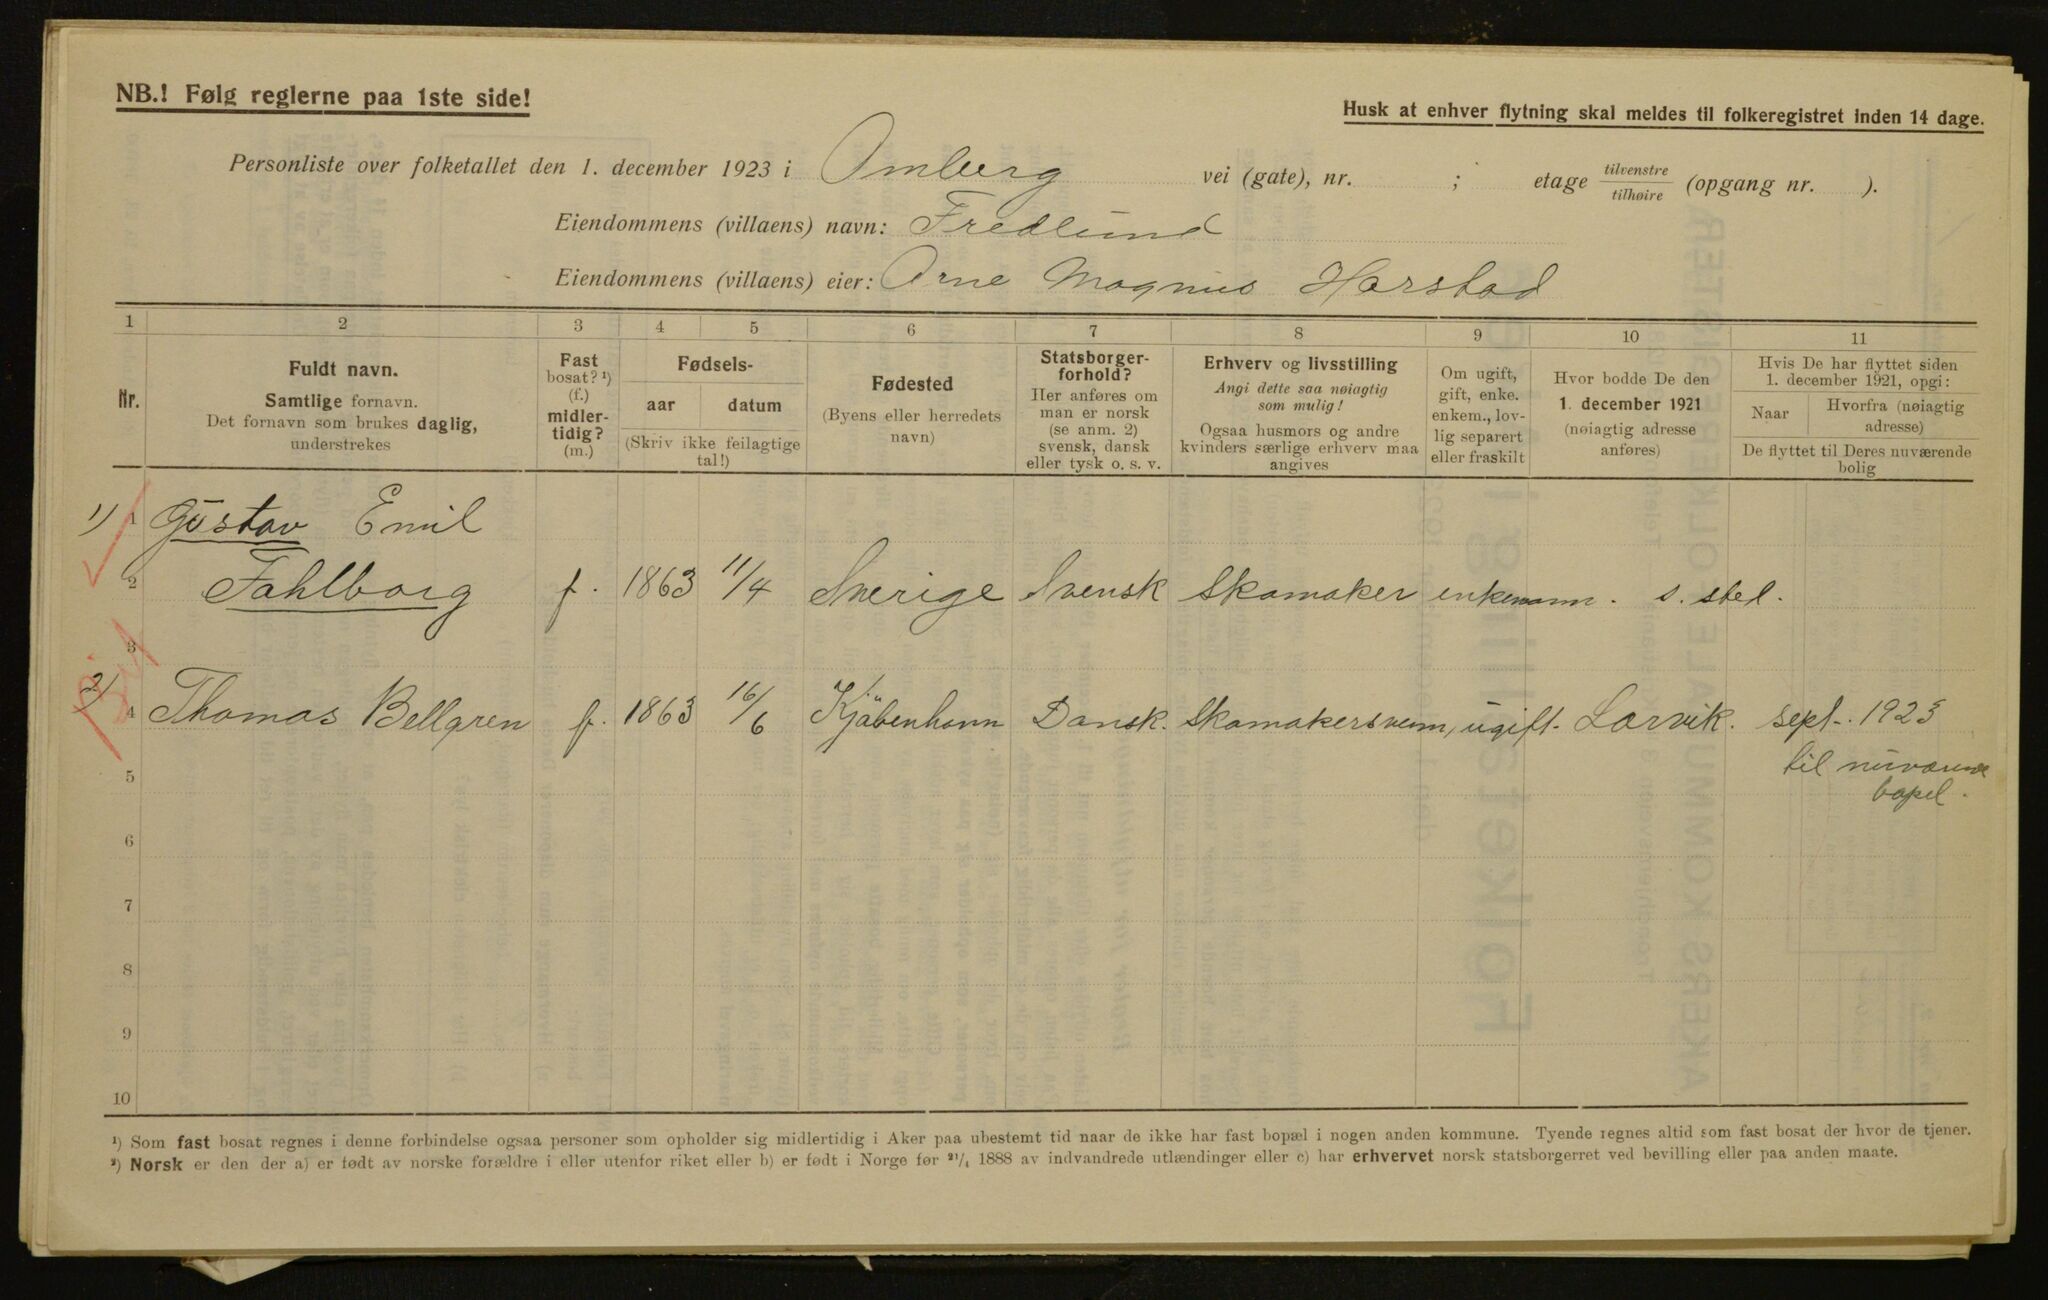 NB.! Følg reglerne paa 1ste side!
Husk at enhver flytning skal meldes til folkeregistret inden 14 dage.
Personliste over folketallet den 1. december 1923 i Omberg vei (gate), nr. ; etage tilvenstre tilhøire (opgang nr. ).
Eiendommens (villaens) navn: Fredlund
Eiendommens (villaens) eier: Arne Magnus Harstad
1 2 3 4 5 6 7 8 9 10 11
Nr.
Fuldt navn.
Samtlige fornavn.
Det fornavn som brukes daglig,
understrekes
Fast
bosat? ¹)
(f.)
midler-
tidig?
(m.)
Fødsels-
aar datum
(Skriv ikke feilagtige
tal!)
Fødested
(Byens eller herredets
navn)
Statsborger-
forhold?
Her anføres om
man er norsk
(se anm. 2)
svensk, dansk
eller tysk o. s. v.
Erhverv og livsstilling
Angi dette saa nøiagtig
som mulig!
Ogsaa husmors og andre
kvinders særlige erhverv maa
angives
Om ugift,
gift, enke.
enkem., lov-
lig separert
eller fraskilt
Hvor bodde De den
1. december 1921
(nøiagtig adresse
anføres)
Hvis De har flyttet siden
1. december 1921, opgi:
Naar
Hvorfra (nøiagtig
adresse)
De flyttet til Deres nuværende
bolig
1) 1 Gustav Emil
2 Fahlborg f. 1863 11/4 Sverige Svensk Skomaker enkemann. s. sted.
3
2) 4 Thomas Bellgren f. 1863 16/6 Kjöbenhavn Dansk. Skomakersvenn, ugift. Larvik. sept. 1923
5 til nuværende
bopel.
6
7
8
9
10
¹) Som fast bosat regnes i denne forbindelse ogsaa personer som opholder sig midlertidig i Aker paa ubestemt tid naar de ikke har fast bopæl i nogen anden kommune. Tyende regnes altid som fast bosat der hvor de tjener.
²) Norsk er den der a) er født av norske forældre i eller utenfor riket eller b) er født i Norge før ²¹/₄ 1888 av indvandrede utlændinger eller c) har erhvervet norsk statsborgerret ved bevilling eller paa anden maate.